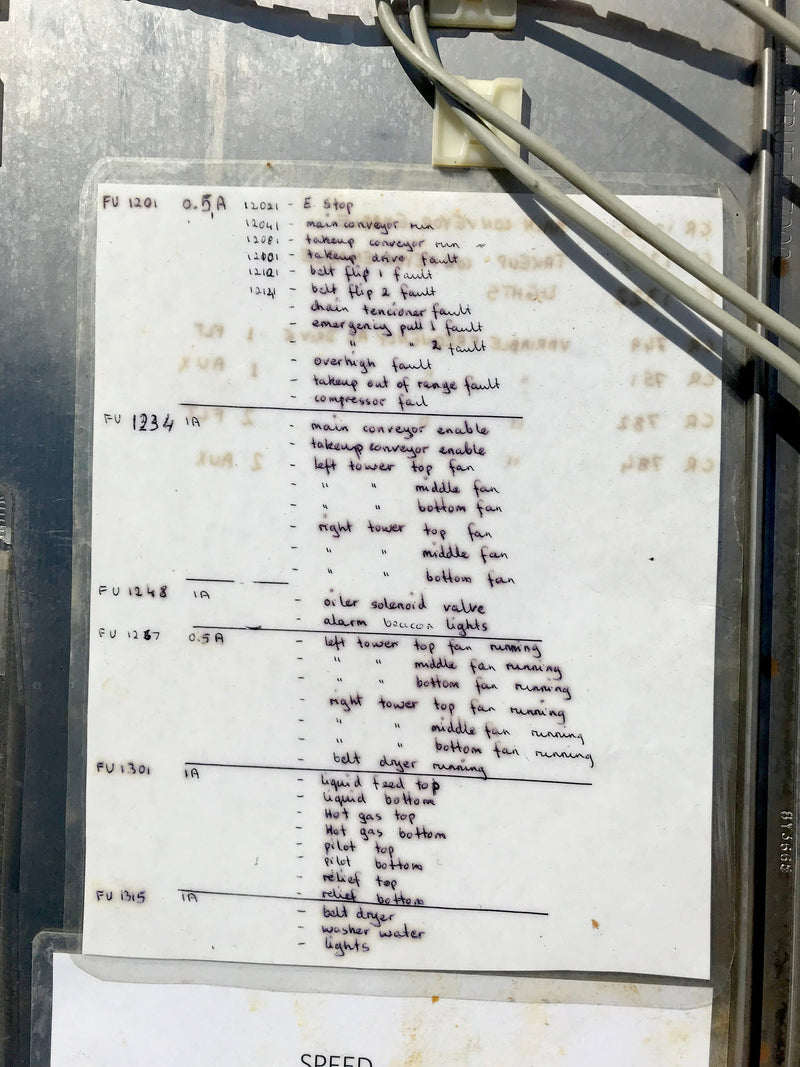 FU 1201 0.5A 12021 - E. Stop
12041 - main conveyor run
12081 - takeup conveyor run
12001 - takeup drive fault
12121 - belt flip 1 fault
12121 - belt flip 2 fault
- chain tencioner fault
- emergency pull 1 fault
" " 2 fault
- overhigh fault
- takeup out of range fault
- compressor fail
FU 1234 1A - main conveyor enable
- takeup conveyor enable
- left tower top fan
- " " middle fan
- " " bottom fan
- right tower top fan
- " " middle fan
- " " bottom fan
FU 1248 1A - oiler solenoid valve
- alarm beacon lights
FU 1267 0.5A - left tower top fan running
- " " middle fan running
- " " bottom fan running
- right tower top fan running
- " " middle fan running
- " " bottom fan running
- belt dryer running
FU 1301 1A - liquid feed top
- liquid bottom
- Hot gas top
- Hot gas bottom
- pilot top
- pilot bottom
- relief top
- relief bottom
FU 1315 1A - belt dryer
- washer water
- lights
SPEED